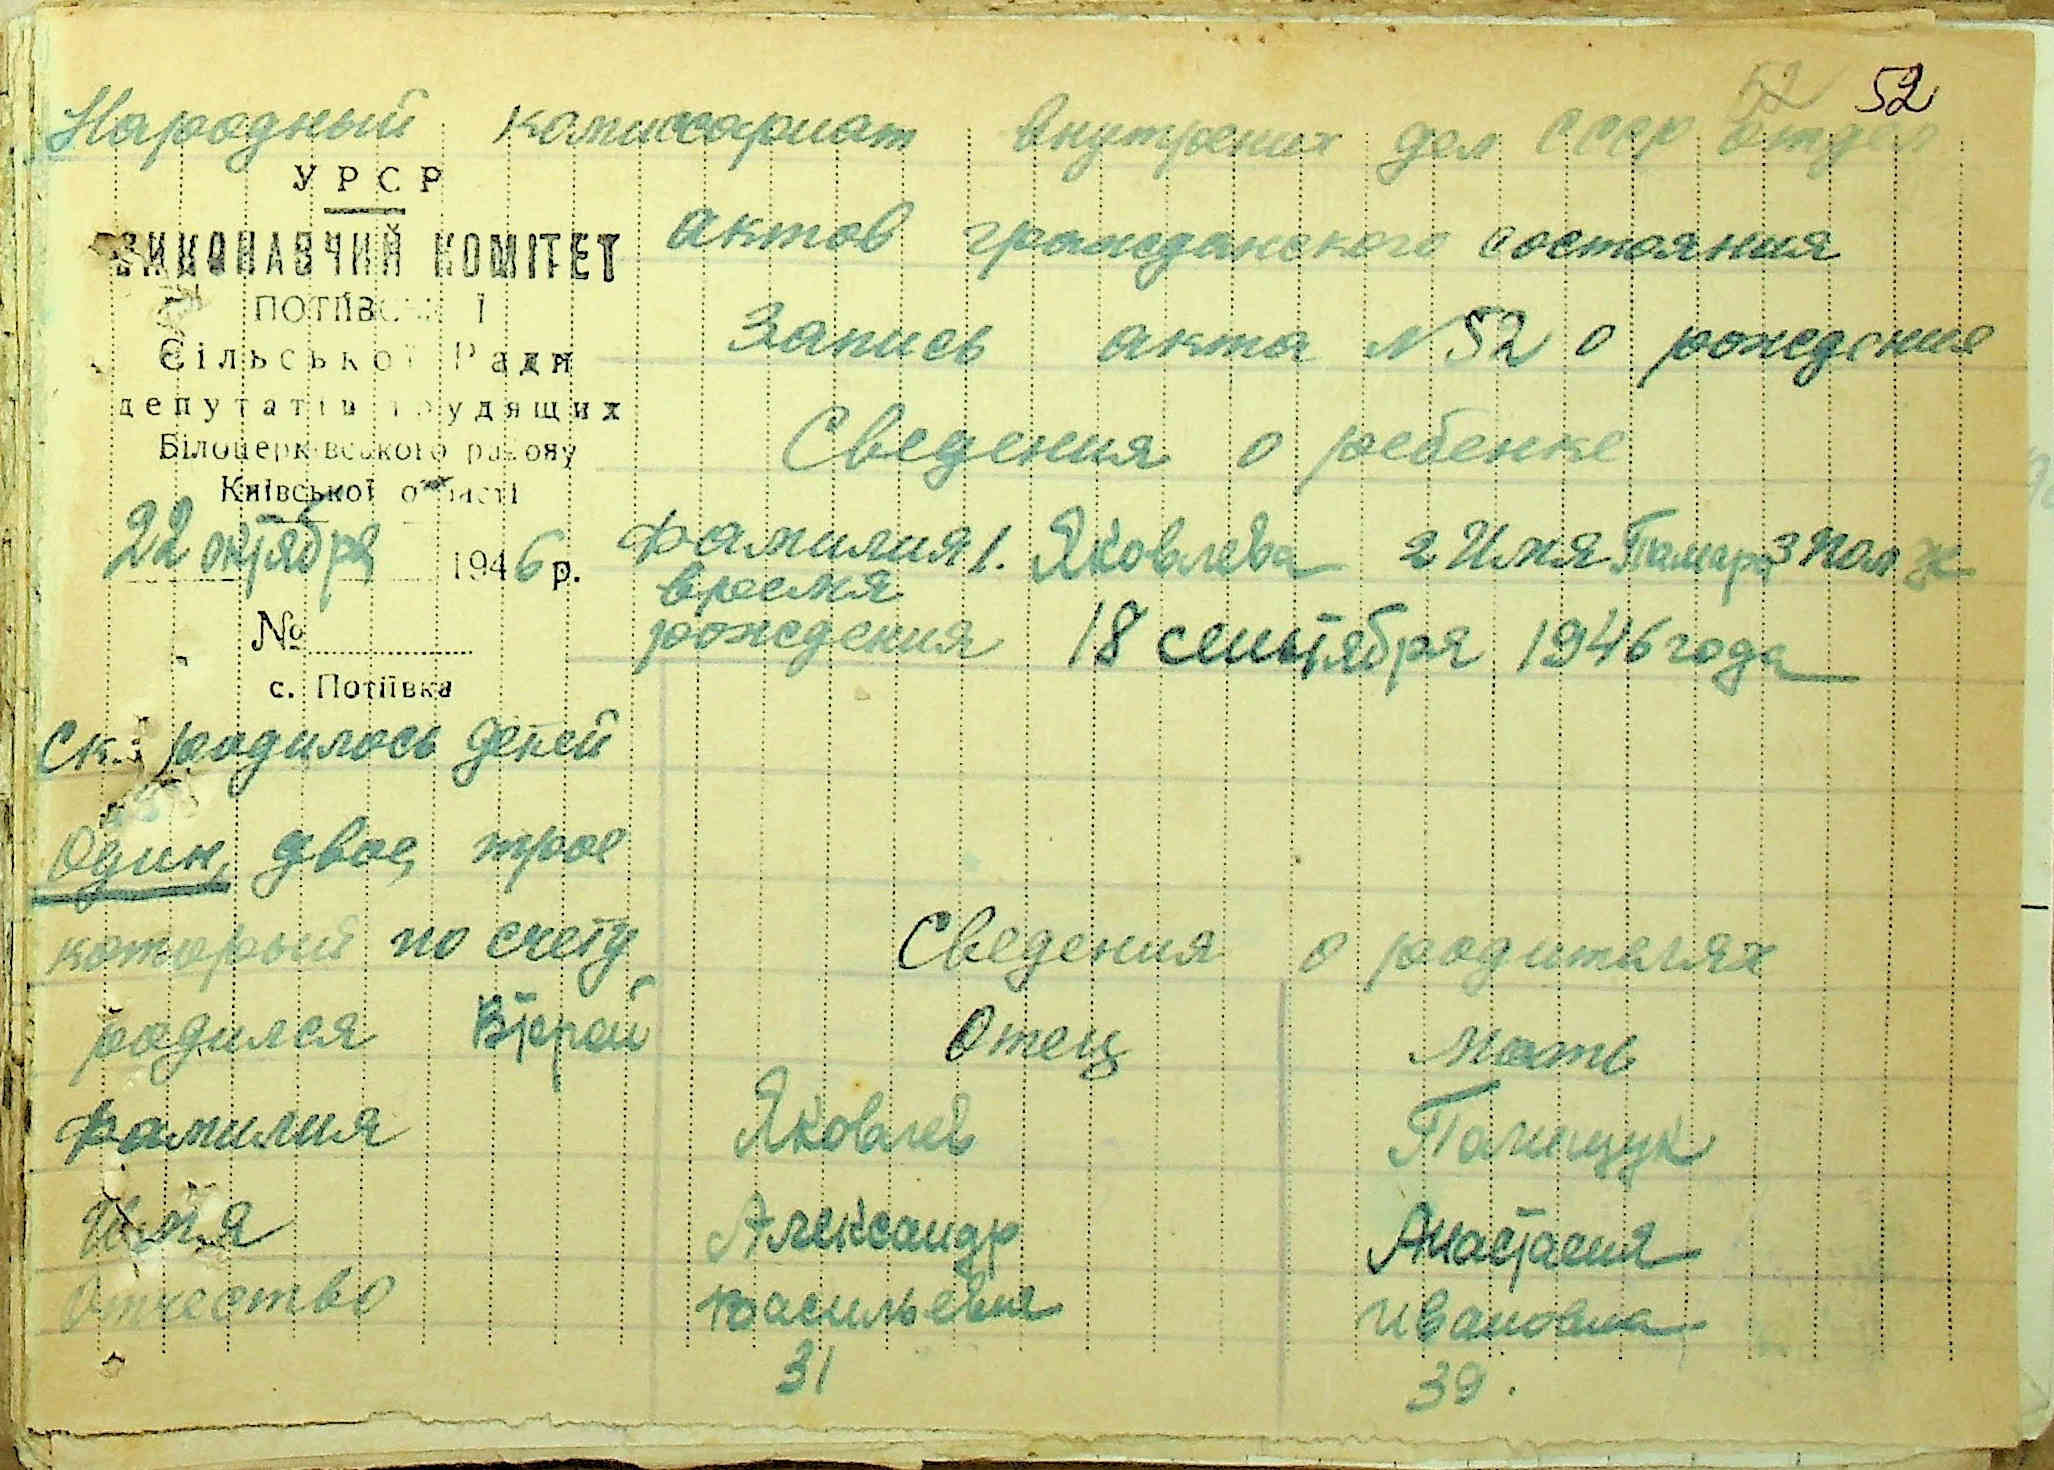 52 52
Народный комиссариат внутрених дел СССР отдел
УРСР
ВИКОНАВЧИЙ КОМІТЕТ
актов гражданского состояния
Сільської Ради
Запись акта № 52 о рождения
депутатів трудящих
Білоцерківського району
Сведения о ребенке
Київської області
22 октября 1946 р.
Фамилия 1. Яковлева 2 Имя Тамара 3 пол ж
время
рождения 18 сентября 1946 года
№
с. Потіївка
ск. родилось детей
Один, двое, трое
который по счету
Сведения о родителях
родился Второй
Отец Мать
Фамилия Яковлев
Имя Александр Анастасия
Отчество Ивановна
31 39.